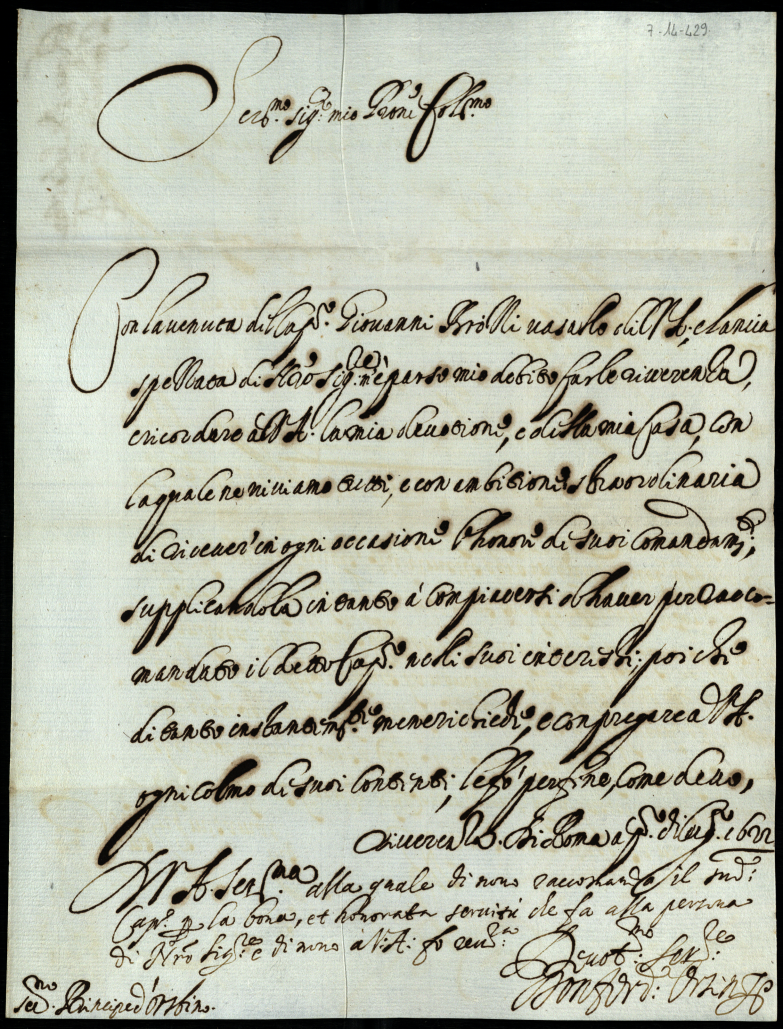 7-14-429
Ser.mo Sig.re mio Prone Coll.mo
Con la venuta del Cap.o Giovanni Brolli vasallo di V.A. e lancia
spezzata di N'ro Sig.re m'è parso mio debito farle riverenza,
e ricordare à V.A. la mia devotione, e della mia Casa, con
la quale ne viviamo tutti, e con ambitione straordinaria
di ricever' in ogni occasione l'honore de suoi comandam.ti;
supplicandola in tanto à compiacersi d'haver per racco=
mandato il detto Cap.o nelli suoi interessi; poiche
di tanto instantem.te me ne richiede, e con pregare a V.A.
ogni colmo de suoi contenti, le fò per fine, come devo,
riverenza. Di Roma a p.o di
D V.A. Ser.ma alla quale di novo raccomando il sud.o
Cap.o p la bona, et honorata servitù che fa alla persona
di N'ro Sig.re e di novo à V.A. fo rev.za
Devot.mo Ser.re
Ser.mo Principe d'Urbino.